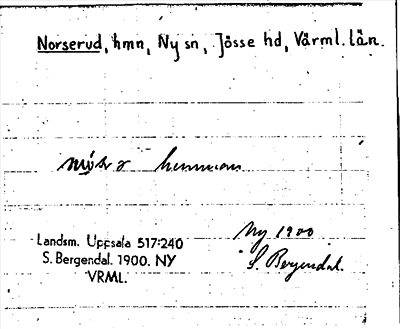 Norserud, hmn, Ny sn, Jösse hd, Värml. län.
hemman
Ny 1900
S. Bergendal.
Landsm. Uppsala 517:240
S. Bergendal. 1900. NY
VRML.